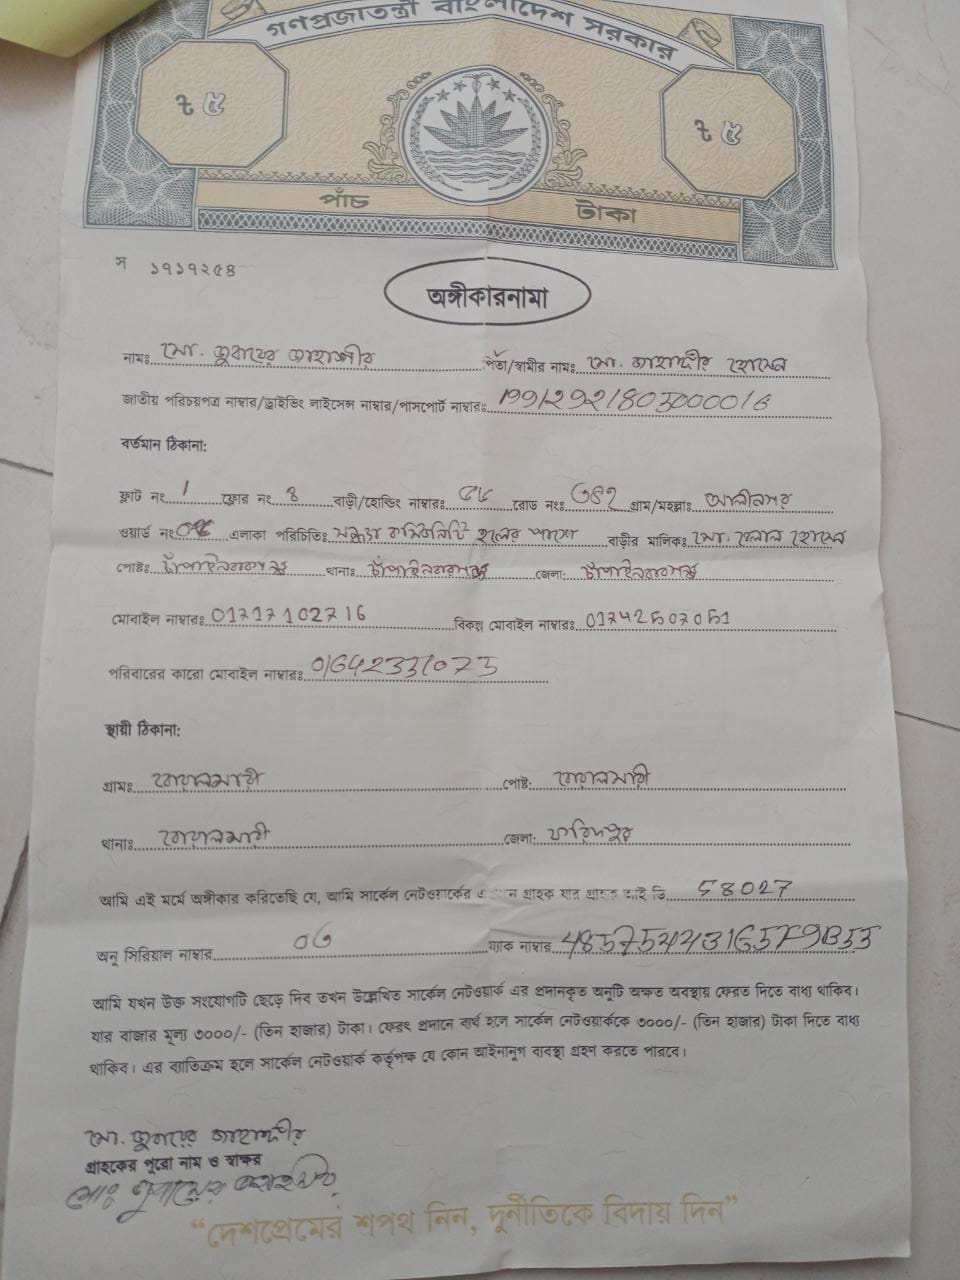 গণপ্রজাতন্ত্রী বাংলাদেশ সরকার
৳ ৫ ৳ ৫
পাঁচ টাকা
স ১৭১৭২৫৪
অঙ্গীকারনামা
নামঃ মো. জুবায়ের জাহাঙ্গীর পিতা/স্বামীর নামঃ মো. জাহাঙ্গীর হোসেন
জাতীয় পরিচয়পত্র নাম্বার/ড্রাইভিং লাইসেন্স নাম্বার/পাসপোর্ট নাম্বারঃ
বর্তমান ঠিকানা:
ফ্লাট নং 1 ফ্লোর নং 4 বাড়ী/হোল্ডিং নাম্বারঃ রোড নংঃ গ্রাম/মহল্লাঃ আলীনগর
ওয়ার্ড নংঃ এলাকা পরিচিতিঃ কমিউনিটি হলের পাশে বাড়ীর মালিকঃ মো. বেলাল হোসেন
পোষ্টঃ চাঁপাইনবাবগঞ্জ থানাঃ চাঁপাইনবাবগঞ্জ জেলা: চাঁপাইনবাবগঞ্জ
মোবাইল নাম্বারঃ 01717102716 বিকল্প মোবাইল নাম্বারঃ
পরিবারের কারো মোবাইল নাম্বারঃ
স্থায়ী ঠিকানা:
গ্রামঃ বোয়ালমারী পোষ্ট: বোয়ালমারী
থানাঃ বোয়ালমারী জেলা: ফরিদপুর
আমি এই মর্মে অঙ্গীকার করিতেছি যে, আমি সার্কেল নেটওয়ার্কের গ্রাহক যার গ্রাহক আই ডি 58027
অনু সিরিয়াল নাম্বার ম্যাক নাম্বার
আমি যখন উক্ত সংযোগটি ছেড়ে দিব তখন উল্লেখিত সার্কেল নেটওয়ার্ক এর প্রদানকৃত অনুটি অক্ষত অবস্থায় ফেরত দিতে বাধ্য থাকিব।
যার বাজার মূল্য ৩০০০/- (তিন হাজার) টাকা। ফেরৎ প্রদানে ব্যর্থ হলে সার্কেল নেটওয়ার্ককে ৩০০০/- (তিন হাজার) টাকা দিতে বাধ্য
থাকিব। এর ব্যতিক্রম হলে সার্কেল নেটওয়ার্ক কর্তৃপক্ষ যে কোন আইনানুগ ব্যবস্থা গ্রহণ করতে পারবে।
মো. জুবায়ের জাহাঙ্গীর
গ্রাহকের পুরো নাম ও স্বাক্ষর
“দেশপ্রেমের শপথ নিন, দুর্নীতিকে বিদায় দিন”